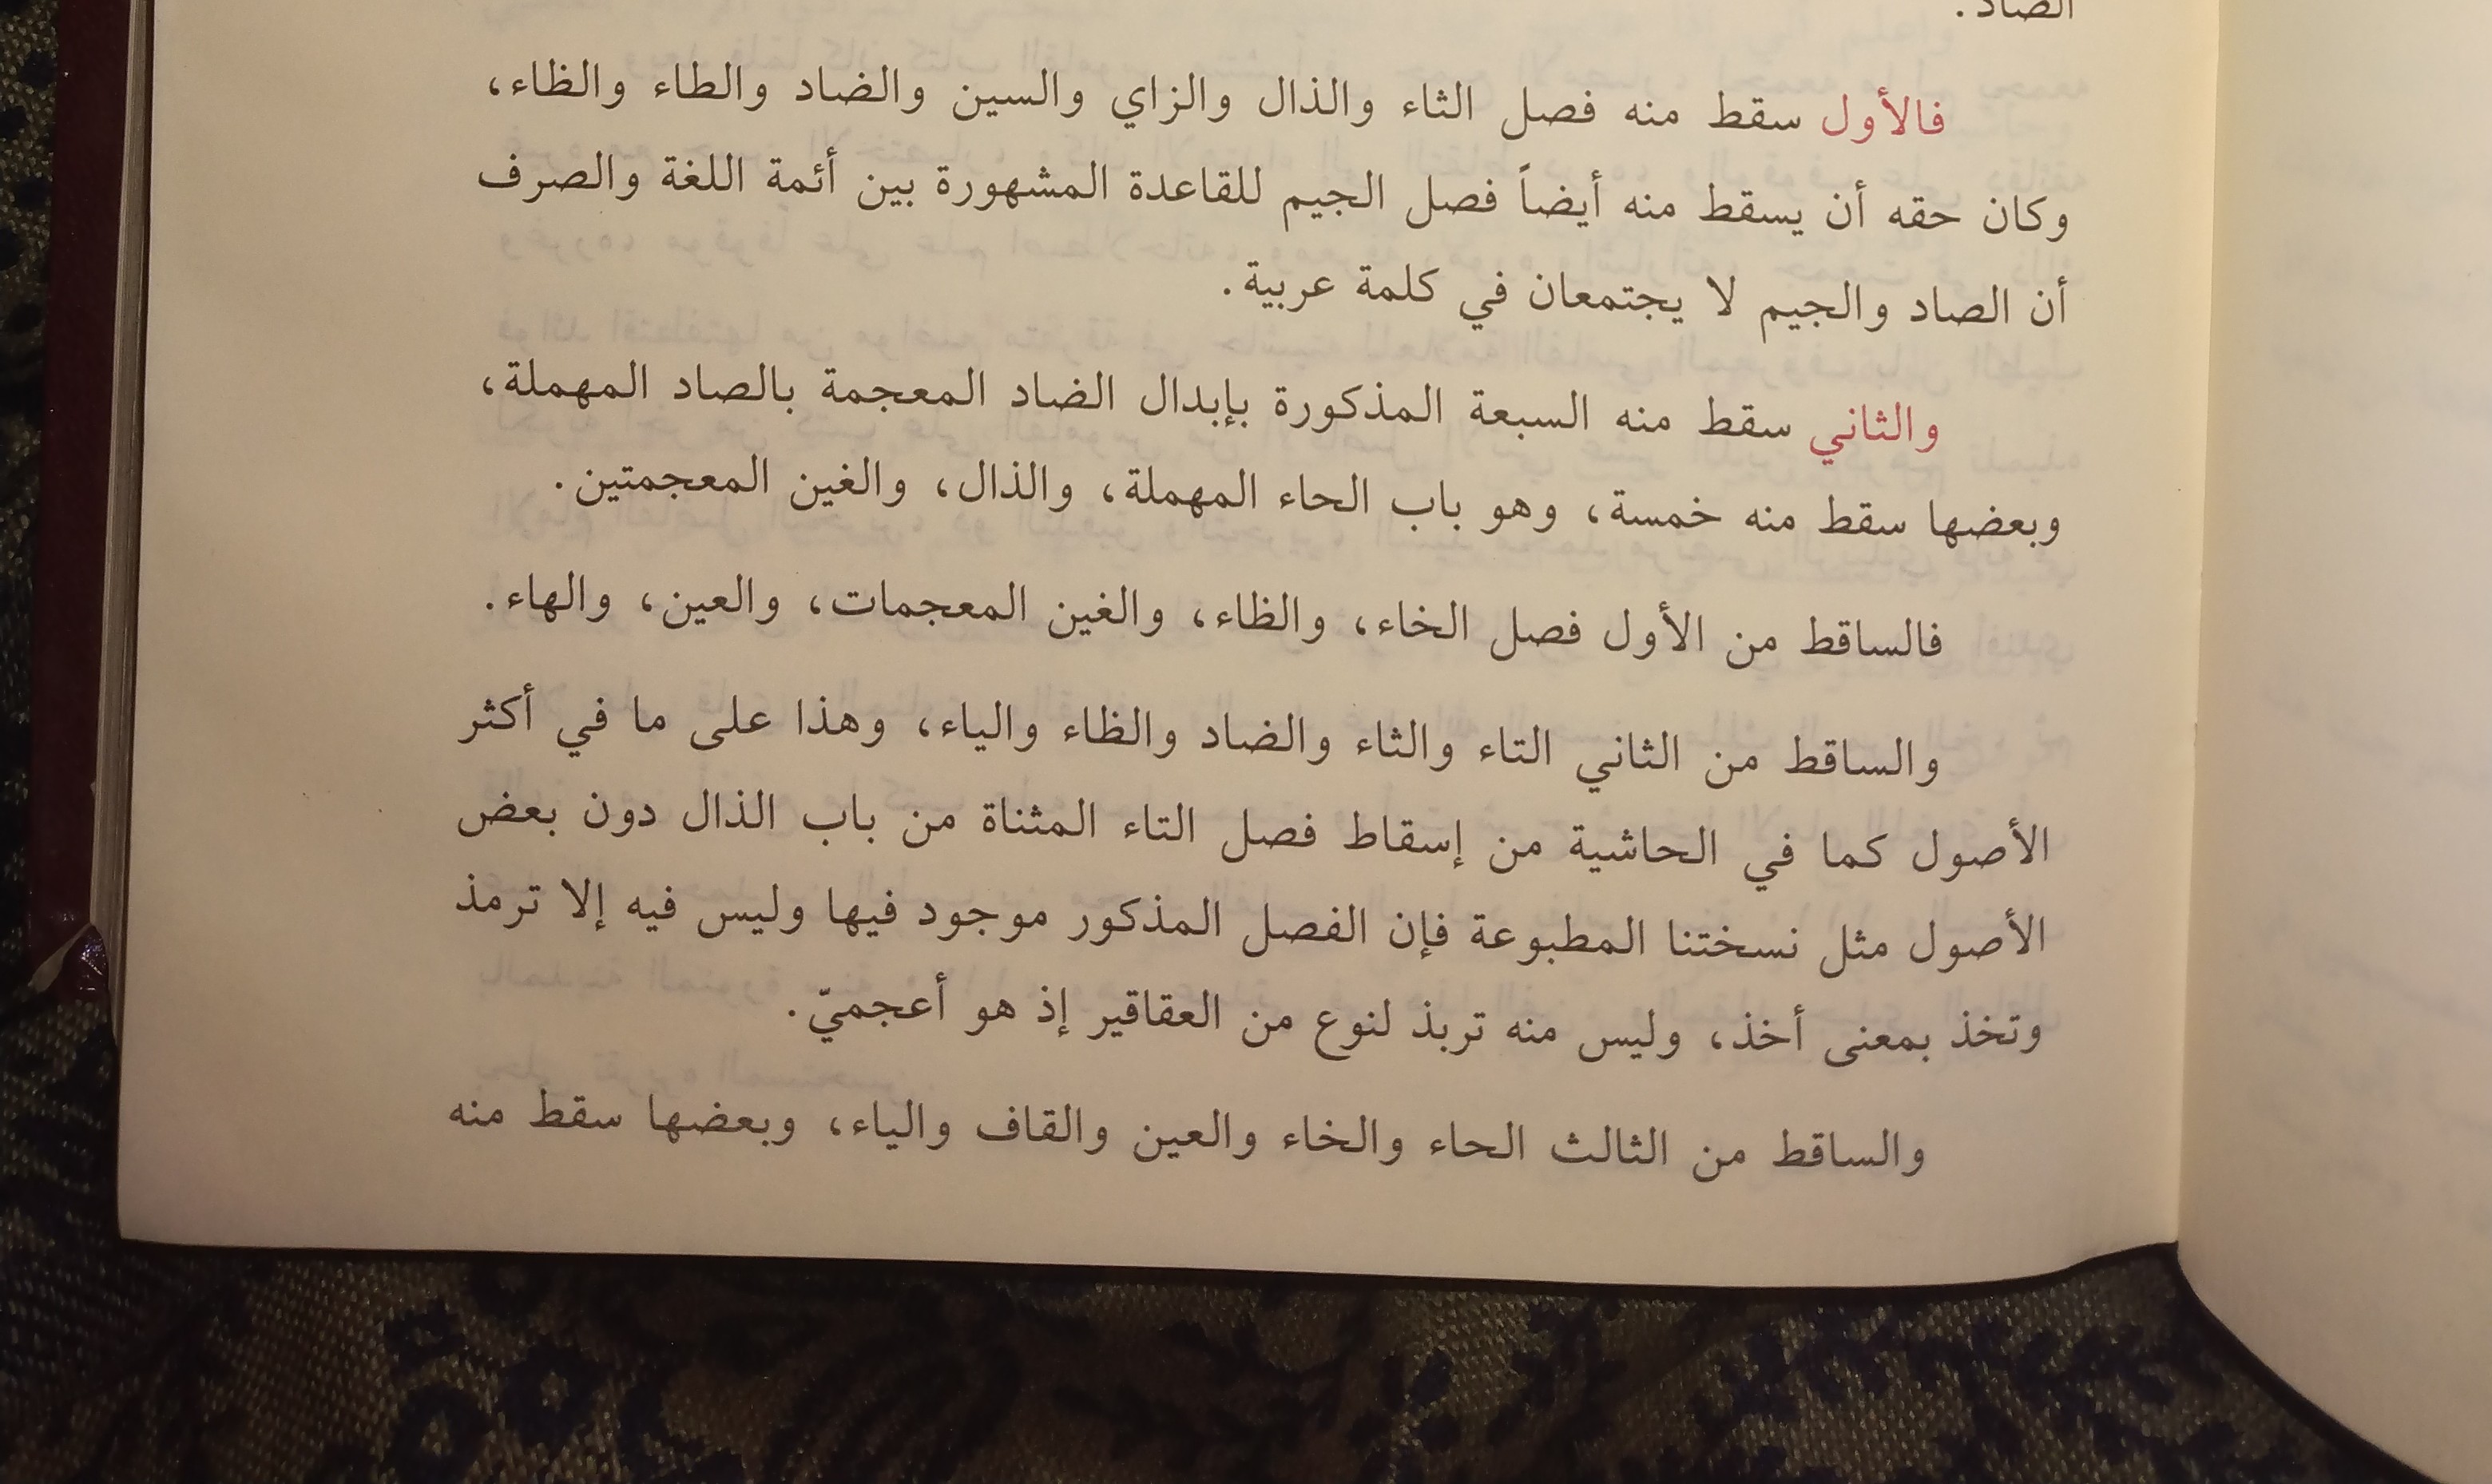 الصاد.
فالأول سقط منه فصل الثاء والذال والزاي والسين والضاد والطاء والظاء،
وكان حقه أن يسقط منه أيضاً فصل الجيم للقاعدة المشهورة بين أئمة اللغة والصرف
أن الصاد والجيم لا يجتمعان في كلمة عربية.
والثاني سقط منه السبعة المذكورة بإبدال الضاد المعجمة بالصاد المهملة،
وبعضها سقط منه خمسة، وهو باب الحاء المهملة، والذال، والغين المعجمتين.
فالساقط من الأول فصل الخاء، والظاء، والغين المعجمات، والعين، والهاء.
والساقط من الثاني التاء والثاء والضاد والظاء والياء، وهذا على ما في أكثر
الأصول كما في الحاشية من إسقاط فصل التاء المثناة من باب الذال دون بعض
الأصول مثل نسختنا المطبوعة فإن الفصل المذكور موجود فيها وليس فيه إلا ترمذ
وتخذ بمعنى أخذ، وليس منه تربذ لنوع من العقاقير إذ هو أعجميّ.
والساقط من الثالث الحاء والخاء والعين والقاف والياء، وبعضها سقط منه